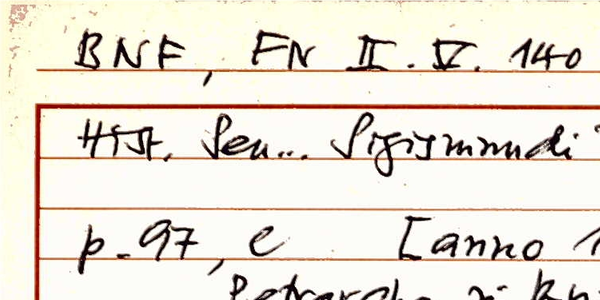 BNF, FN II. V. 140
Hist. Sen... Sigismundi
p. 97, e [anno 1
Petrarcha